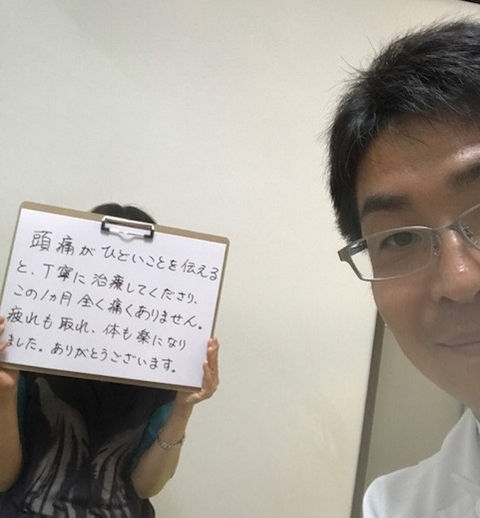 頭痛がひどいことを伝える
と、丁寧に治療してくださり、
この1ヵ月全く痛くありません。
疲れも取れ、体も楽になり
ました。ありがとうございます。